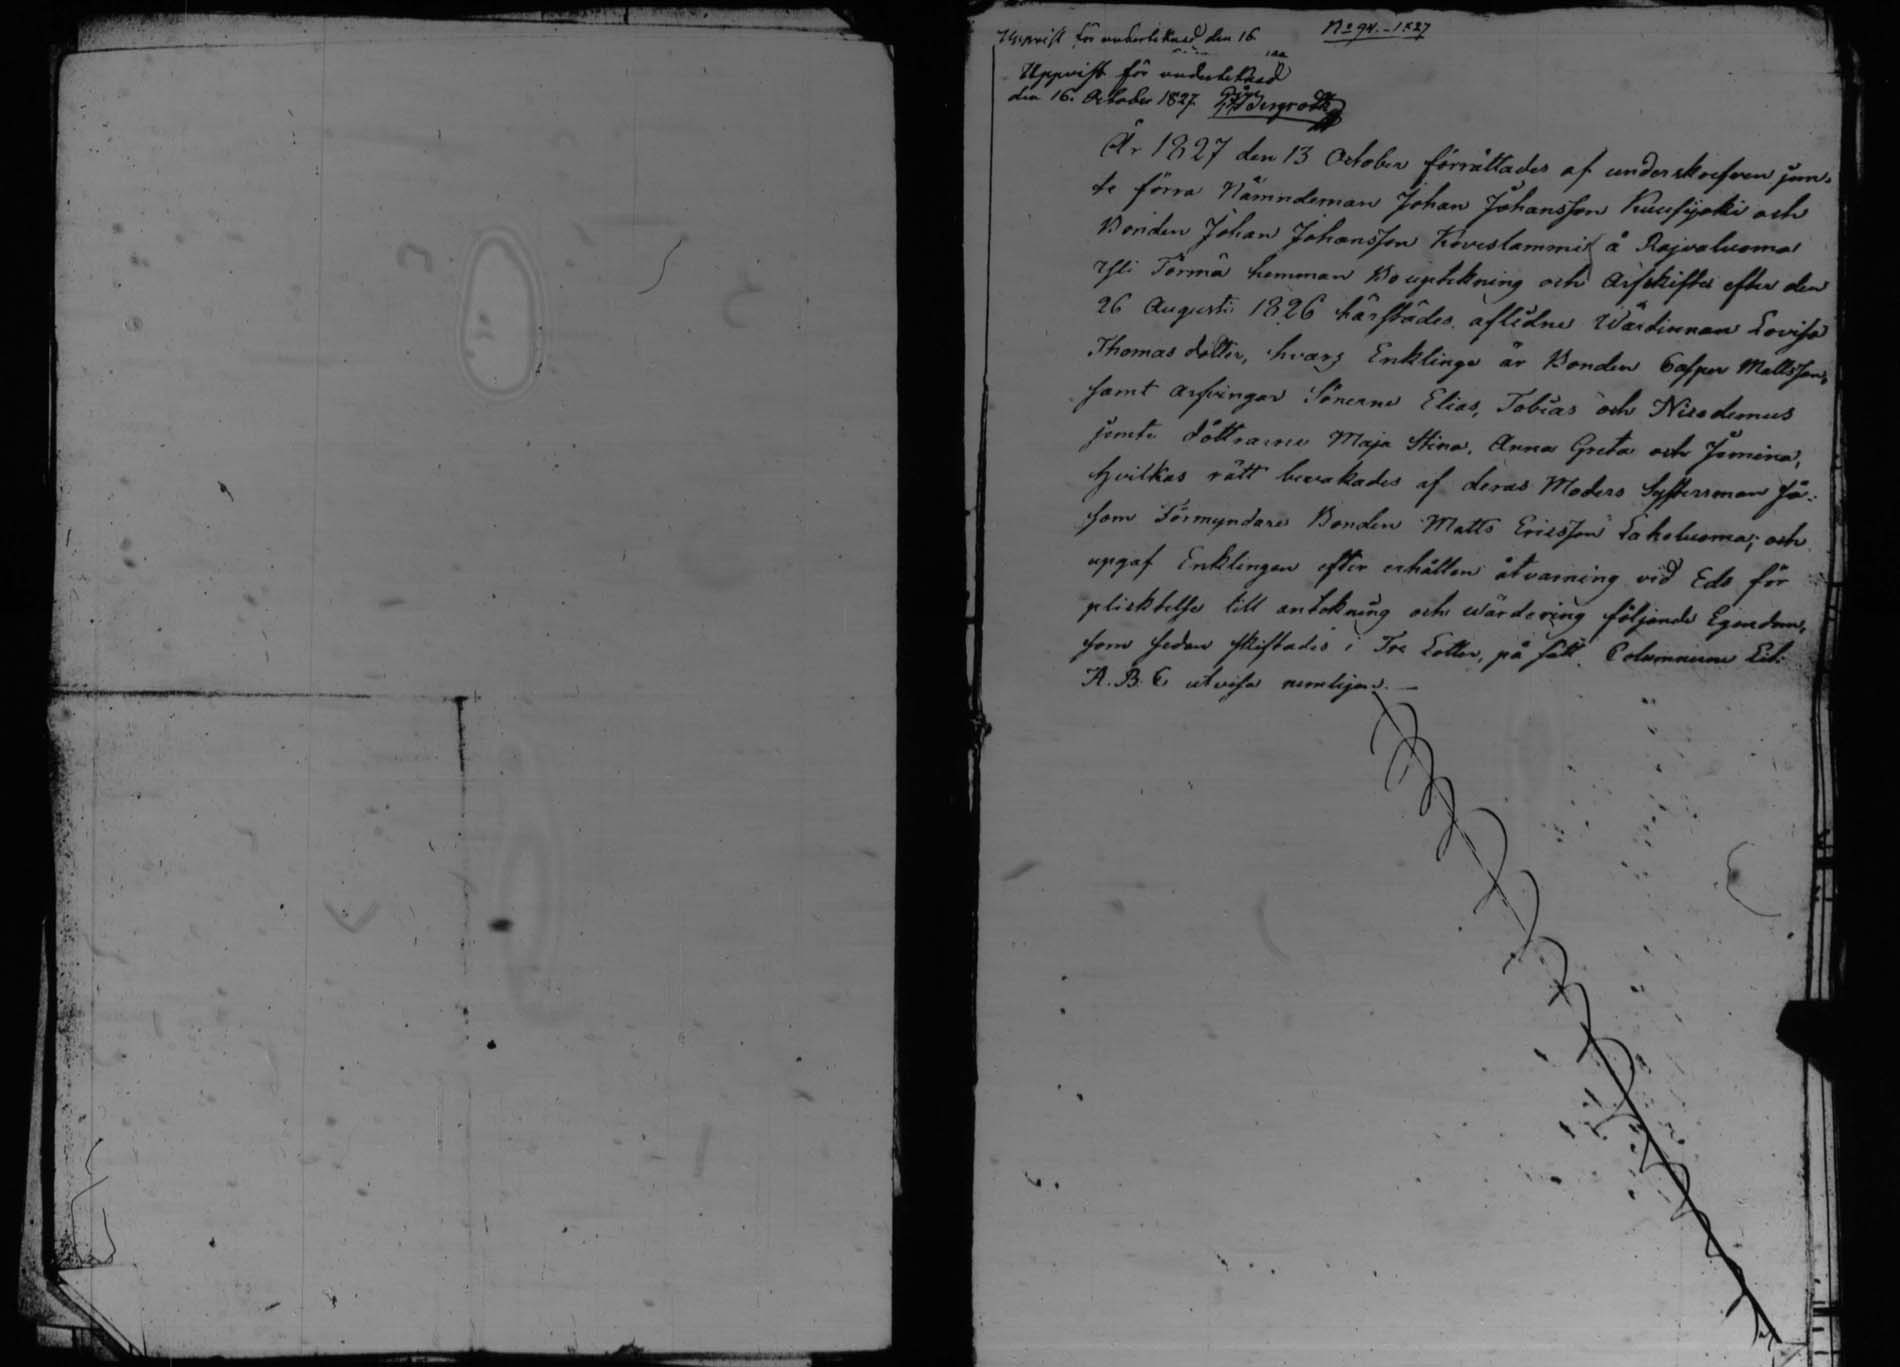 Uppvist för underteknad den 16.
No 94. - 1827
Uppvist för undertecknad
den 16. October 1827.
År 1827 den 13 October förrättades af underskrefven jem-
te förra Nämndeman Johan Johansson Kuusijoki och
Bonden Johan Johansson Koveslammi å Rajvaluoma
Yli Törmä hemman Bouptekning och Arfskifte efter den
26 Augusti 1826 härstädes aflidne Wärdinnan Lovisa
Thomas dotter, hvars Enklinge är Bonden Casper Mattsson,
samt arfvingar Sönerne Elias, Tobias och Nicodemus
jemte döttrarne Maja Stina, Anna Greta och Jemina,
hvilkas rätt bevakades af deras Moders Systersman så-
som Förmyndare Bonden Matts Ericsson Laholuoma; och
upgaf Enklingen efter erhållen åtvarning vid Eds för
pliktelse till antekning och värdering följande Egendom,
som sedan skiftades i Tre Lotter, på sätt Columnerne Litt.
A. B. C utvisa nemligen. —